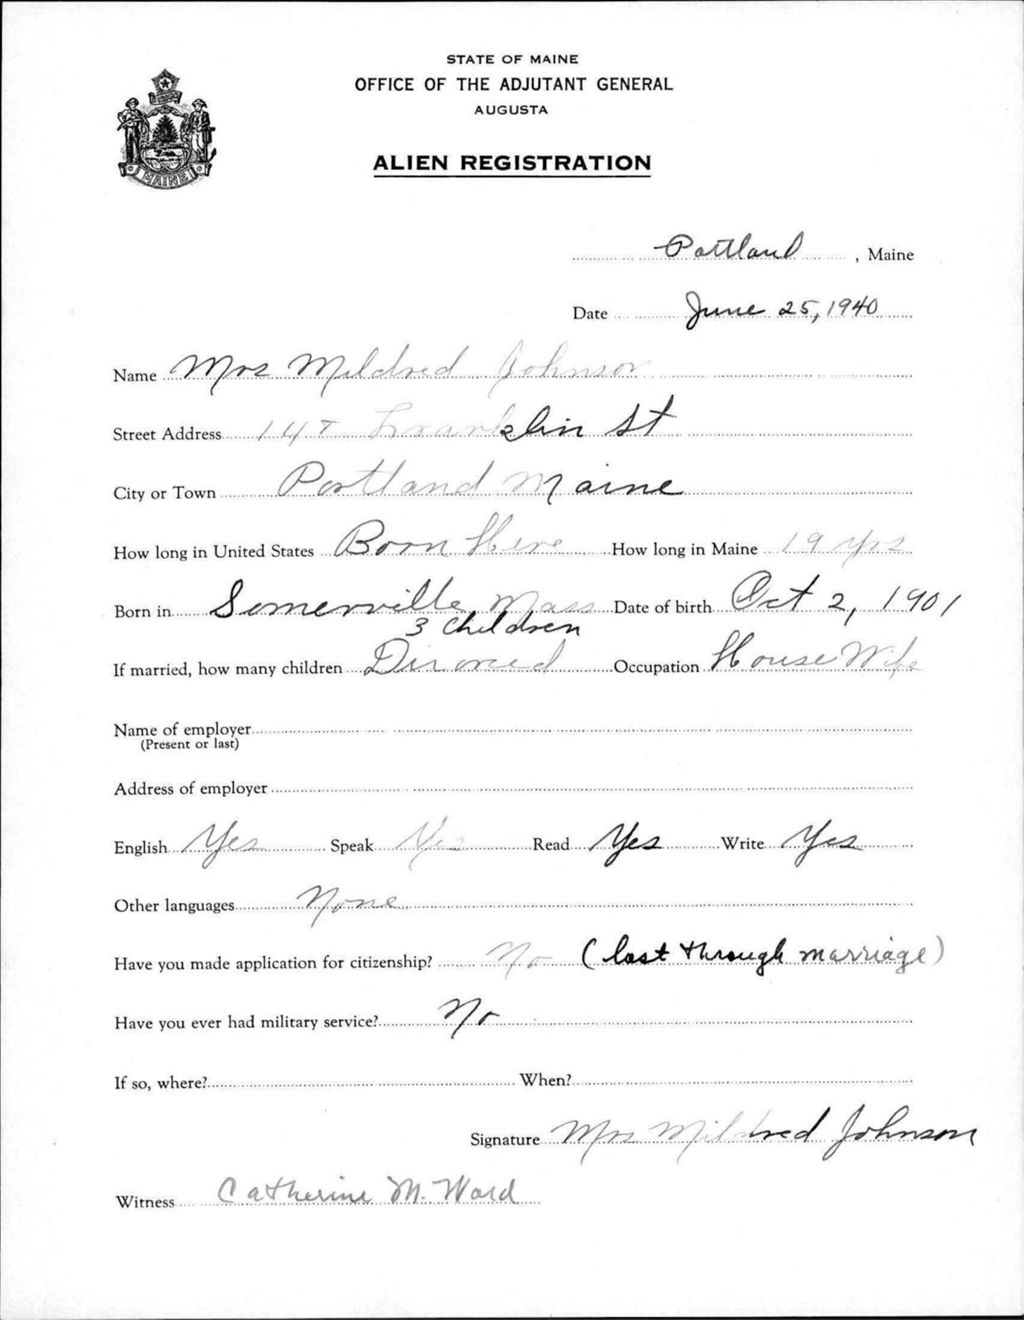 STATE OF MAINE
OFFICE OF THE ADJUTANT GENERAL
AUGUSTA
MAINE
ALIEN REGISTRATION
Portland, Maine
Date June 25, 1940
Name Mrs Mildred Johnson
Street Address 147 Franklin St
City or Town Portland Maine
How long in United States Born Here How long in Maine 19 yrs
Born in Somerville, Mass Date of birth Oct 2, 1901
3 children
If married, how many children Divorced Occupation House Wife
Name of employer
(Present or last)
Address of employer
English Yes Speak Yes Read Yes Write Yes
Other languages None
Have you made application for citizenship? No (lost through marriage)
Have you ever had military service? No
If so, where? When?
Signature Mrs Mildred Johnson
Witness Catherine M. Ward